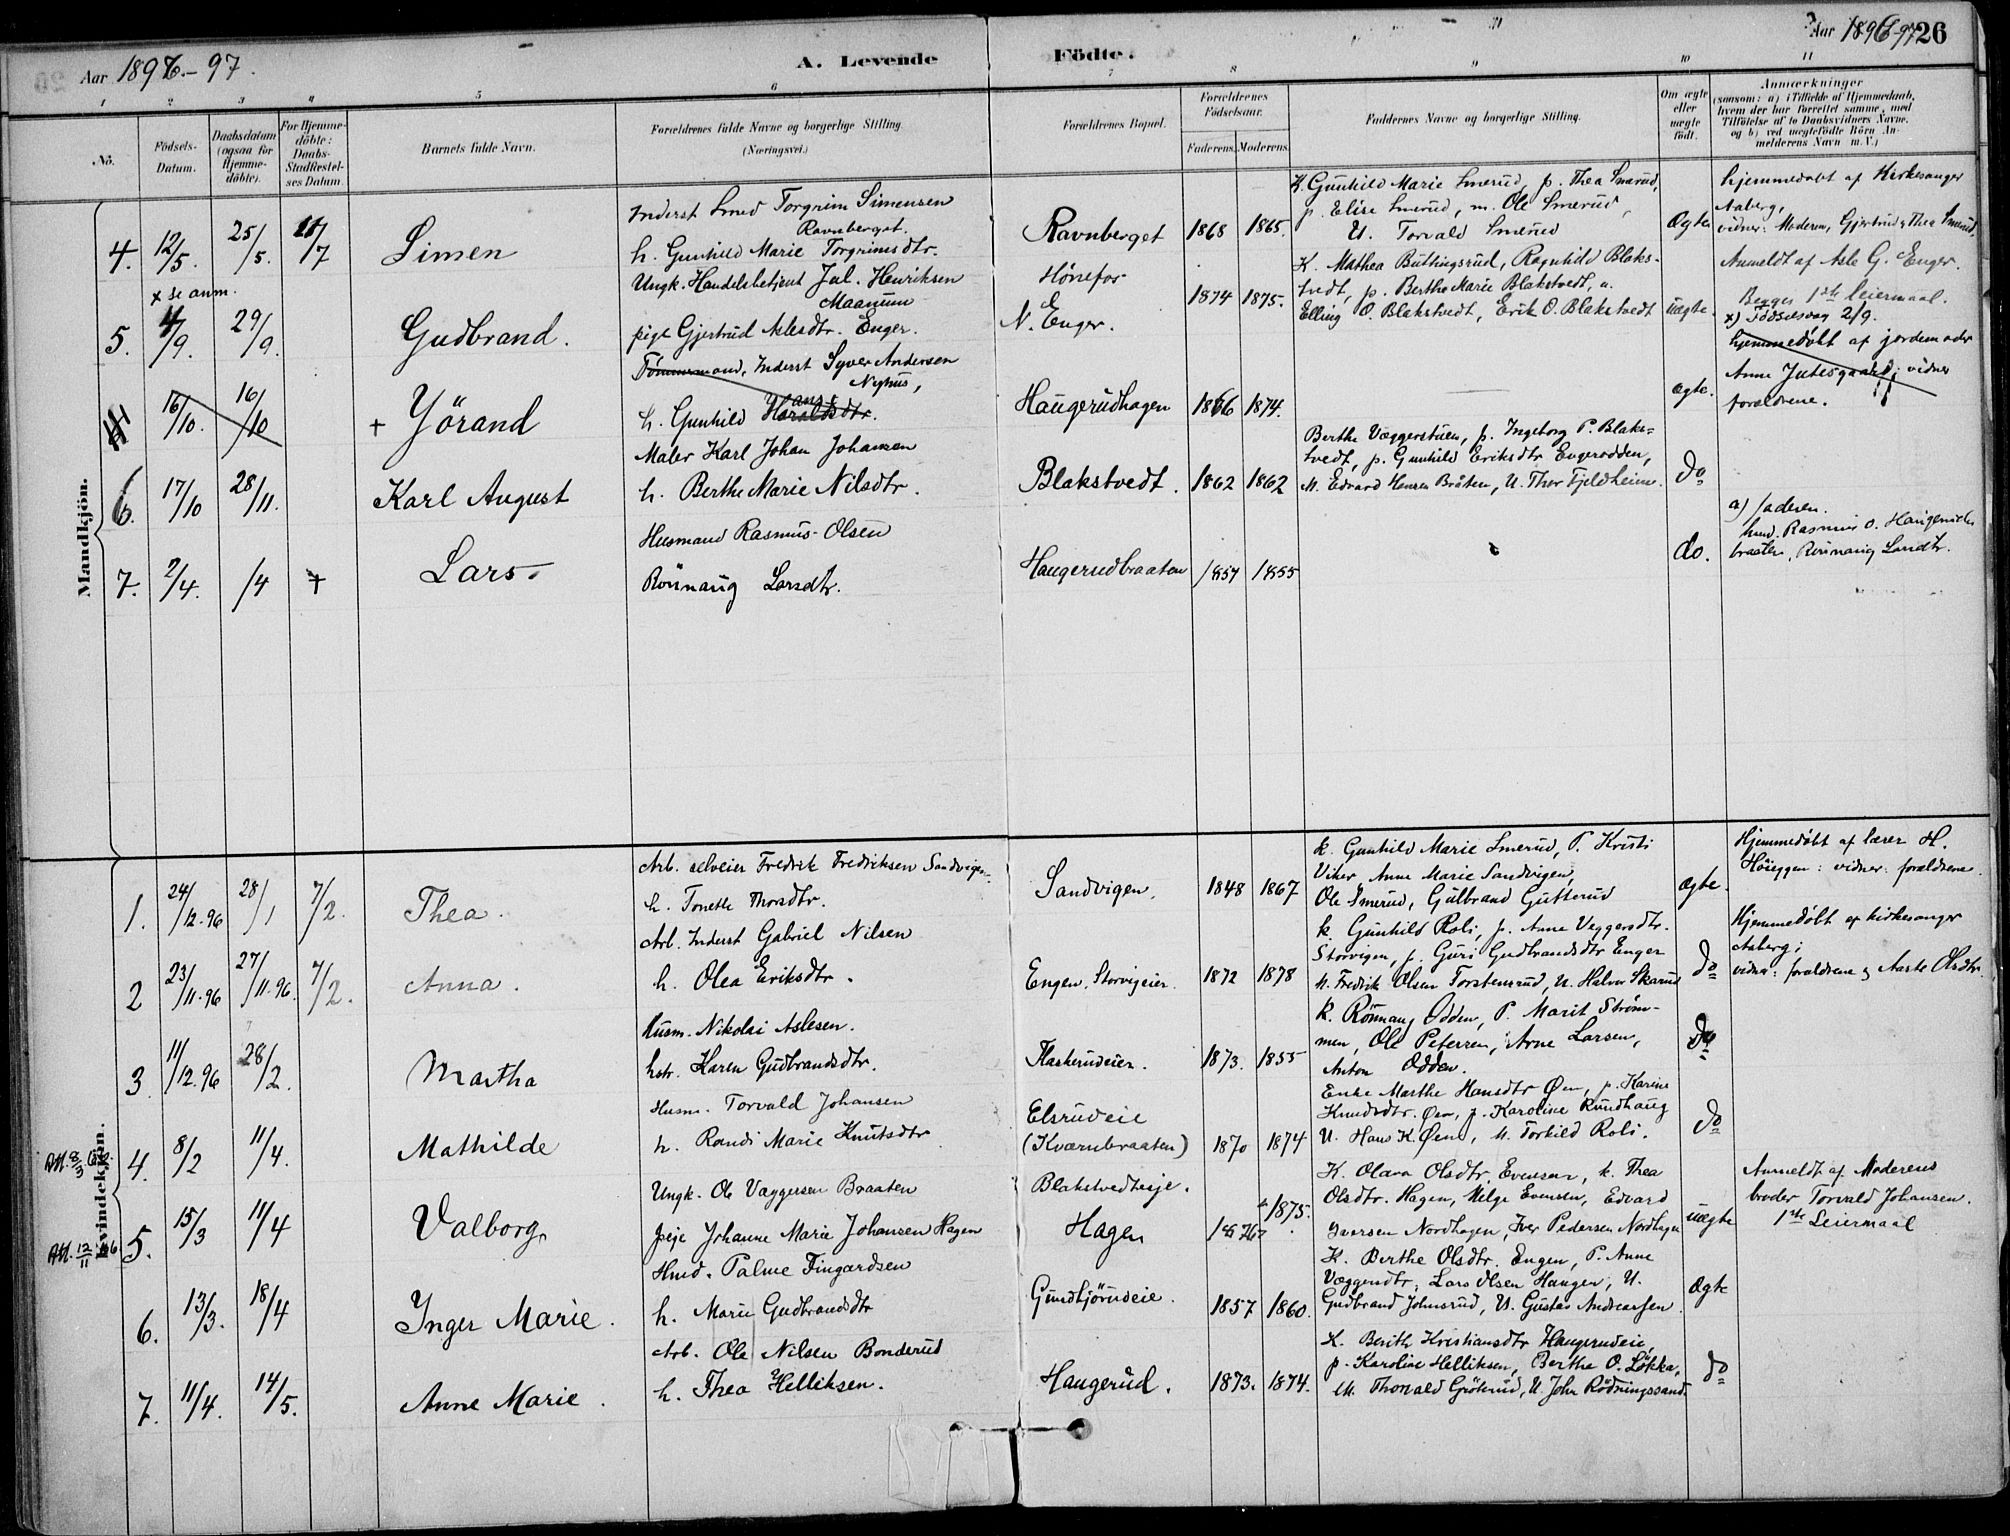 Aar 1896-97.
A. Levende
Födte.
Aar 1896-97 26
1 2 3 4 5 6 7 8 9 10 11
No.
Födsels-Datum.
Daabsdatum (ogsaa for Hjemme-döbte).
For Hjemme-döbte: Daabs-Stadfæstel-ses Datum
Barnets fulde Navn.
Forældrenes fulde Navne og borgerlige Stilling (Næringsvei.)
Forældrenes Bopæl.
Forældrenes Födselsaar.
Faderens. Moderens.
Faddernes Navne og borgerlige Stilling.
Om ægte eller uægte födt.
Anmærkninger
(saasom: a) i Tilfælde af Hjemmedaab,
hvem der har forrettet samme, med
Tilföielse af to Daabsvidners Navne.
og b) ved uægtefödte Börn An-
melderens Navn m. V.)
Mandkjön.
4. 12/5. 25/5. 11/7 Simen
Inderst Smed Torgrim Simensen
Ravnberget.
h. Gunhild Marie Torgrimsdtr.
Ravnberget 1868 1865.
K. Gunhild Marie Smerud, p. Thea Smerud,
p. Elise Smerud, m. Ole Smerud,
U. Torvald Smerud
Ægte
hjemmedøbt af Kirkesanger
Aaberg,
vidner: Moderen, Gjertrud & Thea Smerud.
x se anm.
5. 4/9. 29/9. Gudbrand.
Ungk. Handelsbetjent Jul. Henriksen
Maanum
pige Gjertrud Aslesdtr. Enger.
Hønefos
N. Enger. 1874 1875.
K. Mathea Buttingsrud, Ragnhild Blaks-
tvedt, p. Berthe Marie Blakstvedt, u.
Elling O. Blakstvedt, Erik O. Blakstvedt
uægte.
Anmeldt af Asle G. Enger.
Begges 1ste leiermaal.
x) Fødselsdag 2/9.
16/10. 16/10 + Yörand
Tømmermand, Inderst Syver Andersen
Nyhus,
h. Gunhild Haraldsdtr.
Haugerudhagen 1866 1874.
ægte.
hjemmedøbt af jordemoder
Anne Jutesgaard; vidner
forældrene.
6. 17/10 28/11. Karl August
Maler Karl Johan Johansen
h. Berthe Marie Nilsdtr.
Blakstvedt. 1862 1862
Berthe Væggerstuen, p. Ingeborg P. Blaks=
tvedt, p. Gunhild Eriksdtr Engerodden,
M. Edvard Hansen Bråten, U. Thor Fjeldheim.
do
7. 2/4. /4 + Lars
Husmand Rasmus Olsen
Rönnaug Larsdtr.
Haugerudbraaten 1854 1855
do.
a) faderen.
husm. Rasmus O. Haugeruds
braaten, Rönnaug Larsdtr.
Kvindekjön.
1. 24/12.96 28/1 7/2. Thea.
Arb. selveier Fredrik Fredriksen Sandvigen
h. Tonette Thorsdtr.
Sandvigen. 1848 1867
k. Gunhild Marie Smerud, P. Kristi
Viker, Anne Marie Sandvigen,
Ole Smerud, Gulbrand Gutterud
ægte.
Hjemmedøbt af lærer H.
Høieggen: vidner: forældrene.
2 23/11.96 27/11.96. 7/2. Anna.
Arb. Inderst Gabriel Nilsen
h. Olea Eriksdtr.
Engen, Storvigeier. 1872 1878
k. Gunhild Roli, p. Anne Veggersdtr.
Storvigen, p. Guri Gudbrandsdtr Enger
M. Fredrik Olsen Torstensrud, U. Halvor Skarud
do
Hjemmedøbt af kirkesanger
Aaberg;
vidner: forældrene & Aaste Olsdtr.
3 11/12.96 28/2. Martha
Husm. Nikolai Aslesen.
hstr. Karen Gudbrandsdtr.
Flaskerudeier. 1873. 1855
k. Rönnaug Odden, P. Marit Strøm-
men, Ole Petersen, Arne Larsen,
Anton Odden.
do
4. 8/2 11/4. Mathilde
Husm. Torvald Johansen
h. Randi Marie Knutsdtr
Elsrudeie
(Kværnbraaten) 1870 1874
Enke Marthe Hansdtr Øen, p. Karine
Knudsdtr. Øen, p. Karoline Rundhaug
U. Hans K. Øen, M. Torkild Roli.
do
5. 15/3 11/4 Valborg.
Ungk. Ole Væggersen Braaten
pige Johanne Marie Johansen Hagen
Blakstvedteje.
Hagen 1876 1875.
K. Olava Olsdtr. Evensen, k. Thea
Olsdtr. Hagen, Helge Evensen, Edvard
Iversen Nordhagen, Iver Pedersen Nordhagen
uægte
Anmeldt af Moderens
broder Torvald Johansen.
1ste Leiermaal
6. 13/3. 18/4 Inger Marie.
Husm. Palme Fingardsen
h. Marie Gudbrandsdtr
Gundhjørudeie. 1857 1860.
K. Berthe Olsdtr. Engen, P. Anne
Væggersdtr, Lars Olsen Haugen, U.
Gudbrand Johnsrud, U. Gustav Andreassen.
Ægte
7. 11/4. 14/5. Anne Marie.
Arb. Ole Nilsen Bonderud
h. Thea Helliksen.
Haugerud. 1873. 1874.
K. Berith Kristiansdtr Haugerudeie,
p. Karoline Helliksen, Berthe O. Løkka,
M. Thorvald Grøterud, U. John Rødningssand.
do